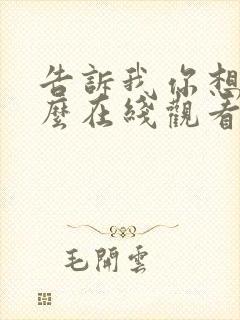 告訴我你想
麼在綫觀看
毛開雲